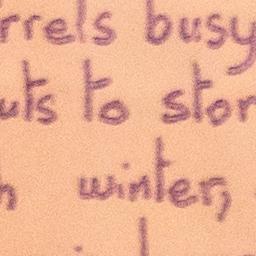 rrels busy
uts to stor
n winter,